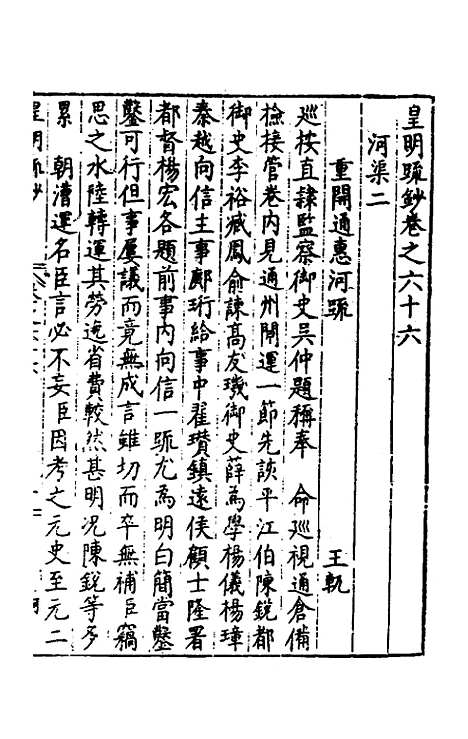 皇明疏鈔卷之六十六
河渠二
重開通惠河疏 王軏
巡按直隸監察御史吳仲題稱奉 命巡視通倉備
檢接管卷內見通州開運一節先該平江伯陳銳都
御史李裕臧鳳俞諫高友璣御史薛為學楊儀楊璋
秦越向信主事鄺珩給事中翟瓚鎮遠侯顧士隆署
都督楊宏各題前事內向信一疏尤為明白簡當鑿
鑿可行但事屢議而竟無成言雖切而卒無補臣竊
思之水陸轉運其勞逸省費較然甚明況陳銳等多
累 朝漕運名臣言必不妄臣因考之元史至元二
皇明疏鈔